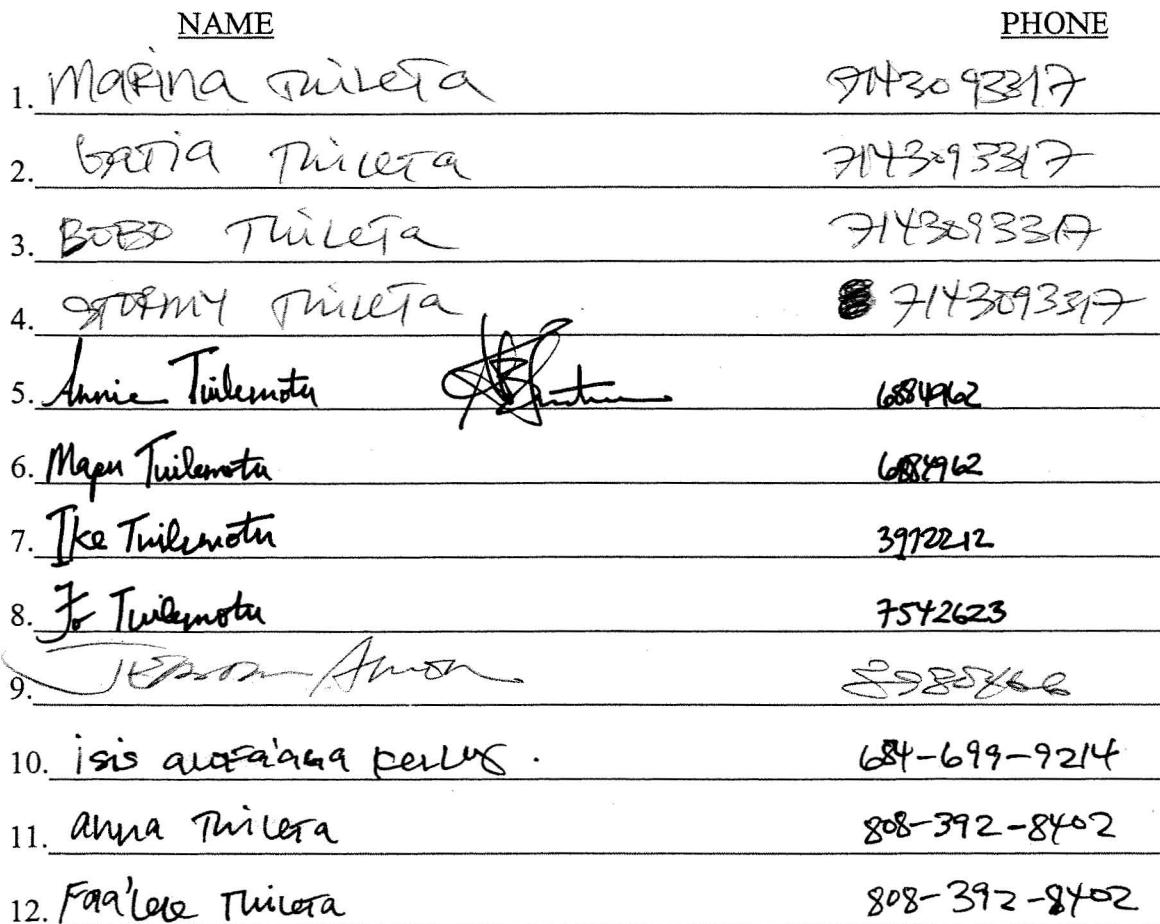 NAME PHONE
1. Marina Tuileta 7143093317
2. Gatia Tuileta 7143093317
3. BOBO Tuileta 7143093317
4. STORMY Tuileta 7143093317
5. Annie Tuilemotu 6884962
6. Mapu Tuilemotu 6884962
7. Ike Tuilemotu 3972212
8. Jo Tuilemotu 7542623
9.
10. isis 684-699-9214
11. anna Tuileta 808-392-8402
12. Faa'lele Tuileta 808-392-8402